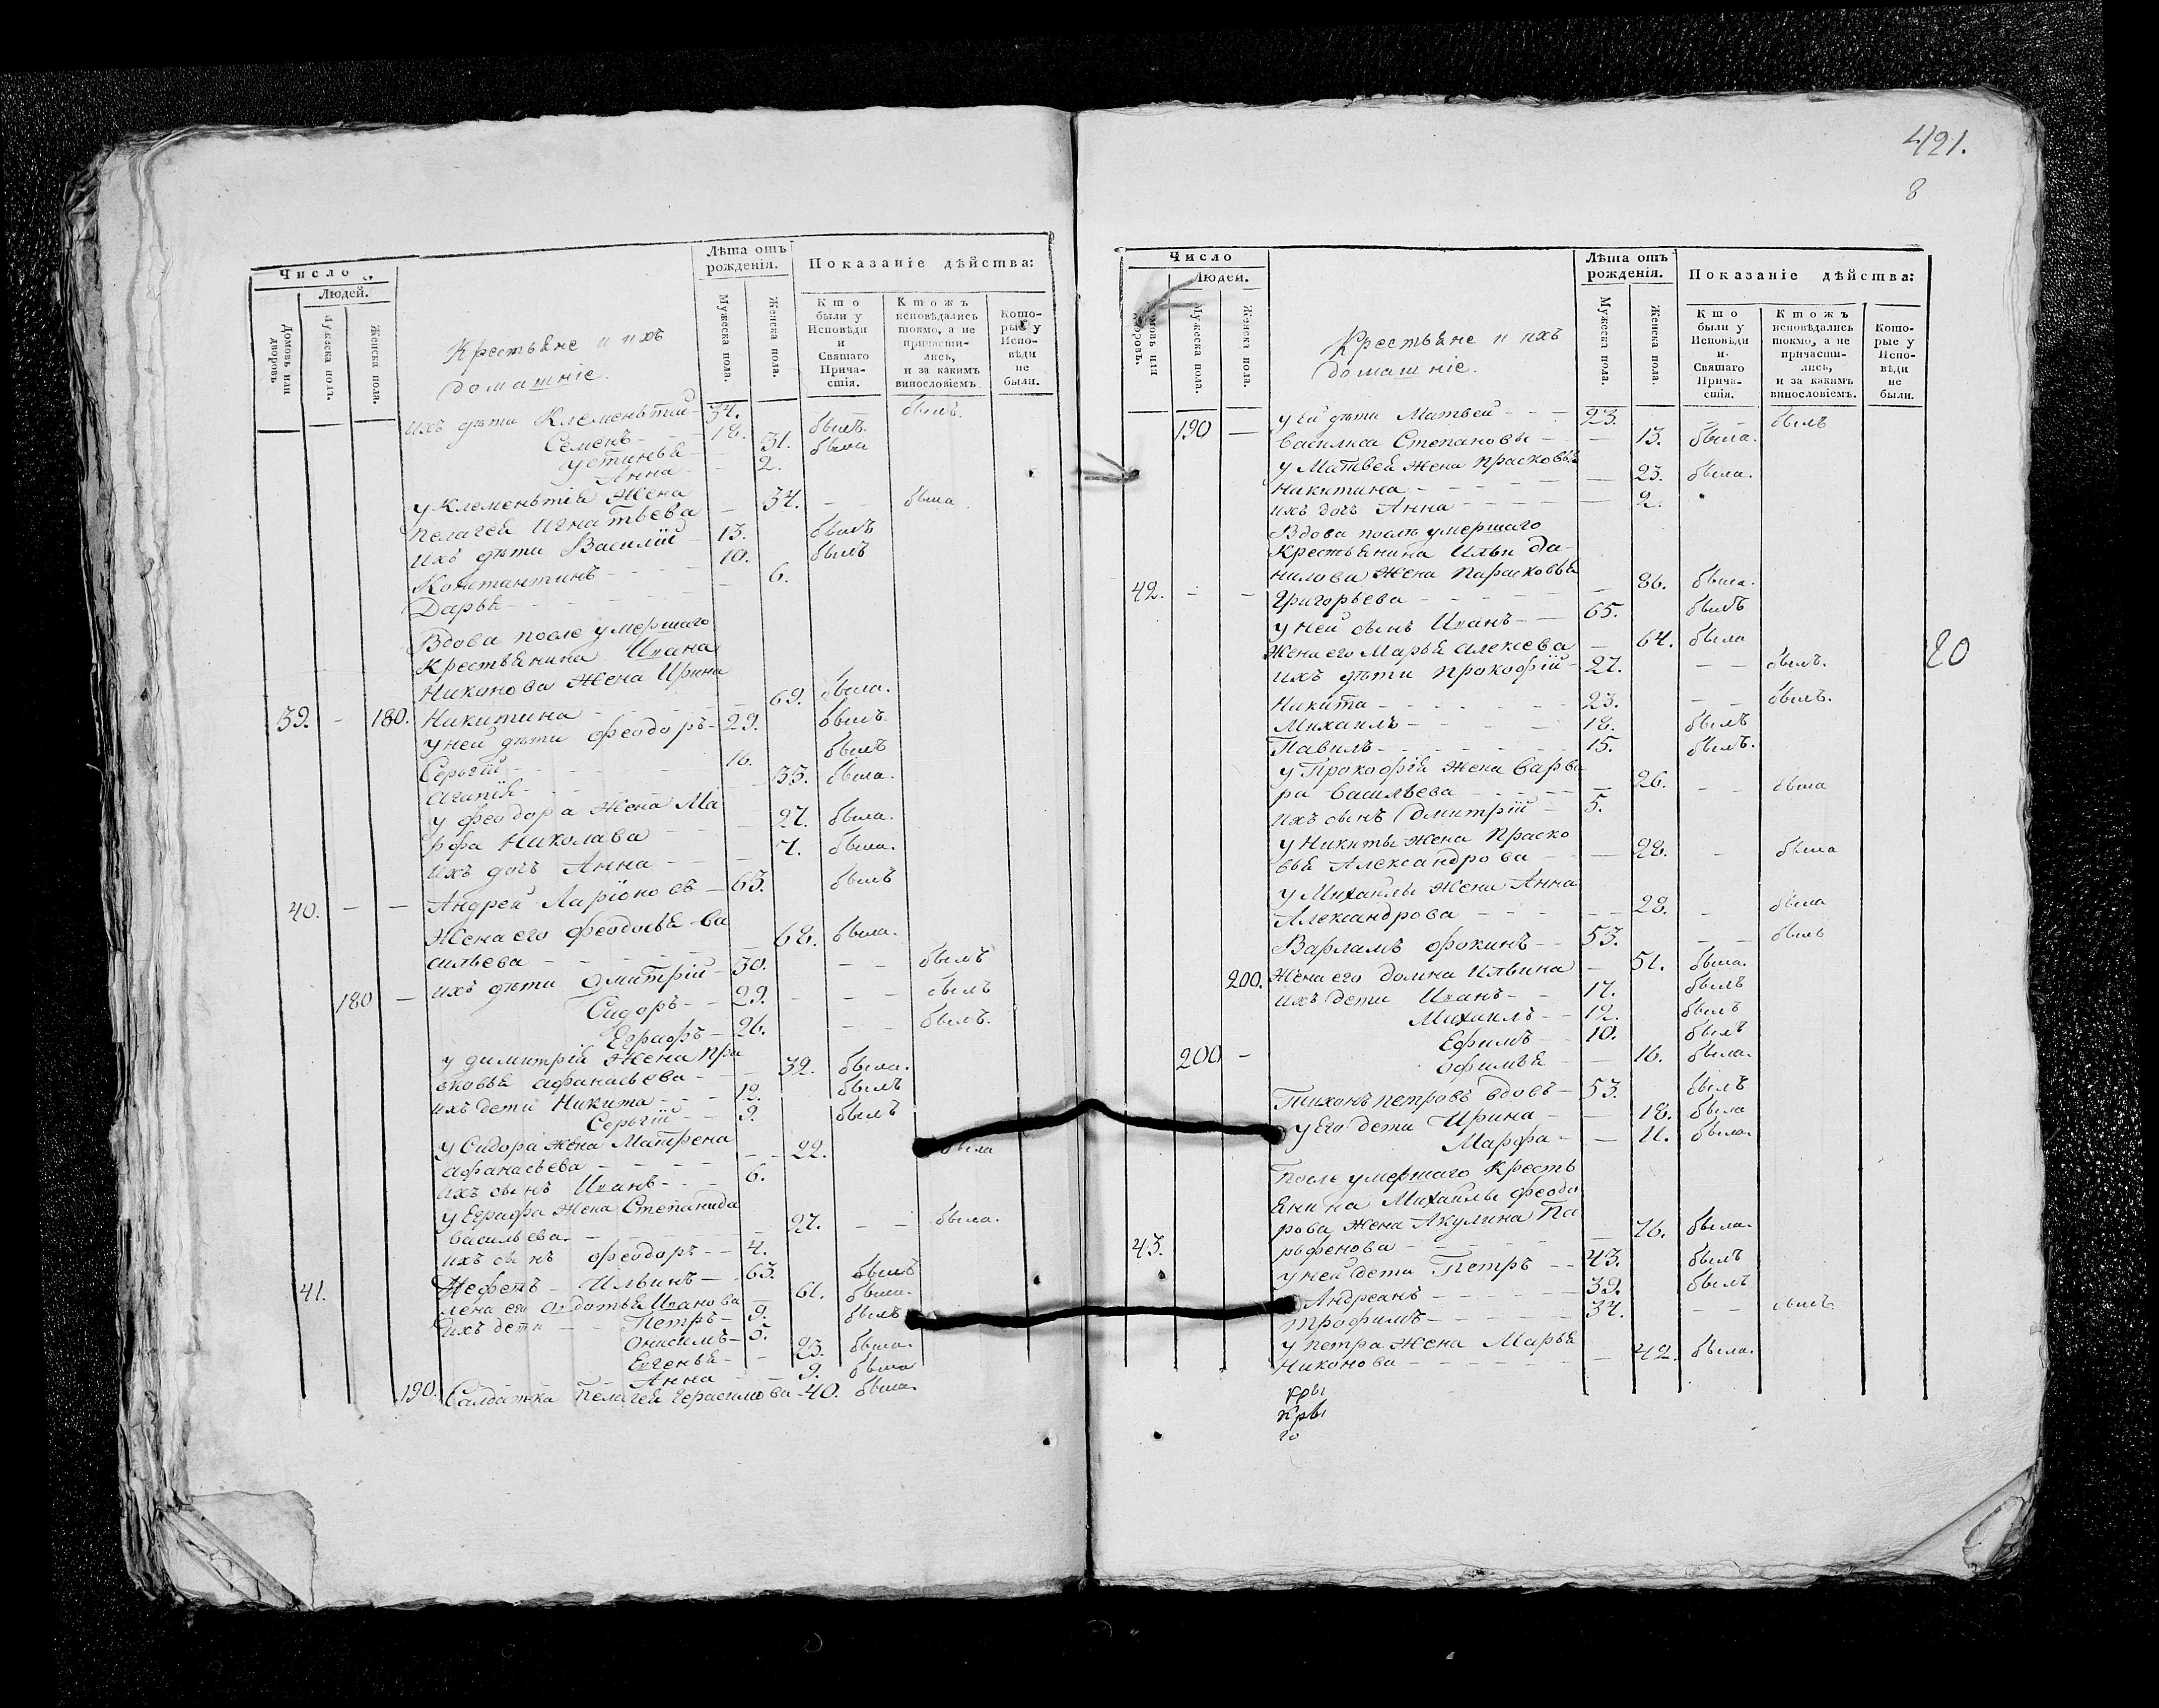 421.
8
Число
Людей.
Домовъ или дворовъ
Мужеска пола.
Женска пола.
Крестьяне и ихъ
домашніе.
Лѣта отъ рожденія.
Мужеска пола.
Женска пола.
Показаніе дѣйства:
Кто были у Исповѣди и Святаго Причастія.
Ктожъ исповѣдались токмо, а не причастились, и за какимъ винословіемъ.
Которые у Исповѣди не были.
ихъ дѣти Клеменьтий - 34. былъ.
Семенъ - 18. былъ
Устинья 31. была
Анна - 2.
у Клеменьтія жена
Пелагея Игнатьева - 34. - была
ихъ дѣти Василій - 13. былъ
Константинъ - 10. былъ
Дарья - 6.
Вдова после умершаго
Крестьянина Ивана
Никонова жена Ирина
39. - 180. Никитина - 69. была.
у ней дѣти Феодоръ - 29. былъ
Сергій - 16. былъ
Агапія - 33. была.
у Феодора жена Ма
рфа Николава - 27. была.
ихъ дочь Анна - 7. была.
40. - - Андрей Ларіоновъ - 63. былъ
Жена его Феодосья Ва
сильева - 68. была.
180 - ихъ дѣти Дмитрій - 30. - - былъ
Сидоръ - 29. - - былъ
Евграфъ - 26. - - былъ.
у Димитрія жена Пра
сковья Афанасьева - 32. была.
ихъ дети Никита - 12. былъ
Сергій - 9. былъ
у Сидора жена Матрена
Афанасьева - 22. была
ихъ сынъ Иванъ - 6.
у Евграфа жена Степанида
Васильева. - 27. - - была.
ихъ сынъ Феодоръ - 4.
41. Нефетъ - Ильинъ - 63. былъ
жена его Авдотья Иванова - 61. была.
ихъ дети - Петръ - 9. былъ
Онисимъ - 5.
Евгенья - 23. была.
Анна - 9. была
190. Салдатка Пелагея Герасимова - 40. была.
Число
Людей.
Домовъ или дворовъ.
Мужеска пола.
Женска пола.
Крестьяне и ихъ
домашніе.
Лѣта отъ рожденія.
Мужеска пола.
Женска пола.
Показаніе дѣйства:
Кто были у Исповѣди и Святаго Причастія.
Ктожъ исповѣдались токмо, а не причастились, и за какимъ винословіемъ.
Которые у Исповѣди не были.
190 - у ей дѣти Матвей - 23. - - былъ
Василиса Степановы - 13. была.
у Матвея жена Прасковья
Никитина - 23. была.
ихъ дочь Анна - 2.
Вдова послѣ умершаго
Крестьянина Ильи Да-
нилова жена Парасковья
42. - - Григорьева - 86. была.
у ней сынъ Иванъ - 65. былъ
Жена его Марья Алексеева - 64. была
ихъ дѣти Прокофій - 27. - - былъ.
20
Никита - 23. - - былъ.
Михаилъ - 18. былъ
Павилъ - 15. былъ.
у Прокофія жена Варва
ра Васильева - 26. - - была
ихъ сынъ Дмитрій - 5.
у Никиты жена Праско
вья Александрова - 28. - была
у Михайлы жена Анна
Александрова - 28. - была
Варламъ Фокинъ - 53. - - былъ
200. Жена его Домна Ильина - 51. была.
ихъ дети Иванъ - 17. былъ
Михаилъ - 12. былъ
Ефимъ - 10. былъ
200 - Офимья - 16. была.
Тихонъ Петровъ вдовъ - 53. былъ
у его дети Ирина - 18. была
Марфа - 11. была.
После умершаго Кресть
янина Михайлы Феодо
рова жена Акулина Па
43. рьфенова - 76. была.
у ней дети Петръ - 43. былъ
Андреанъ - 39. былъ
Трофимъ - 34. - - былъ.
у Петра жена Марья
Никонова - 42. была.